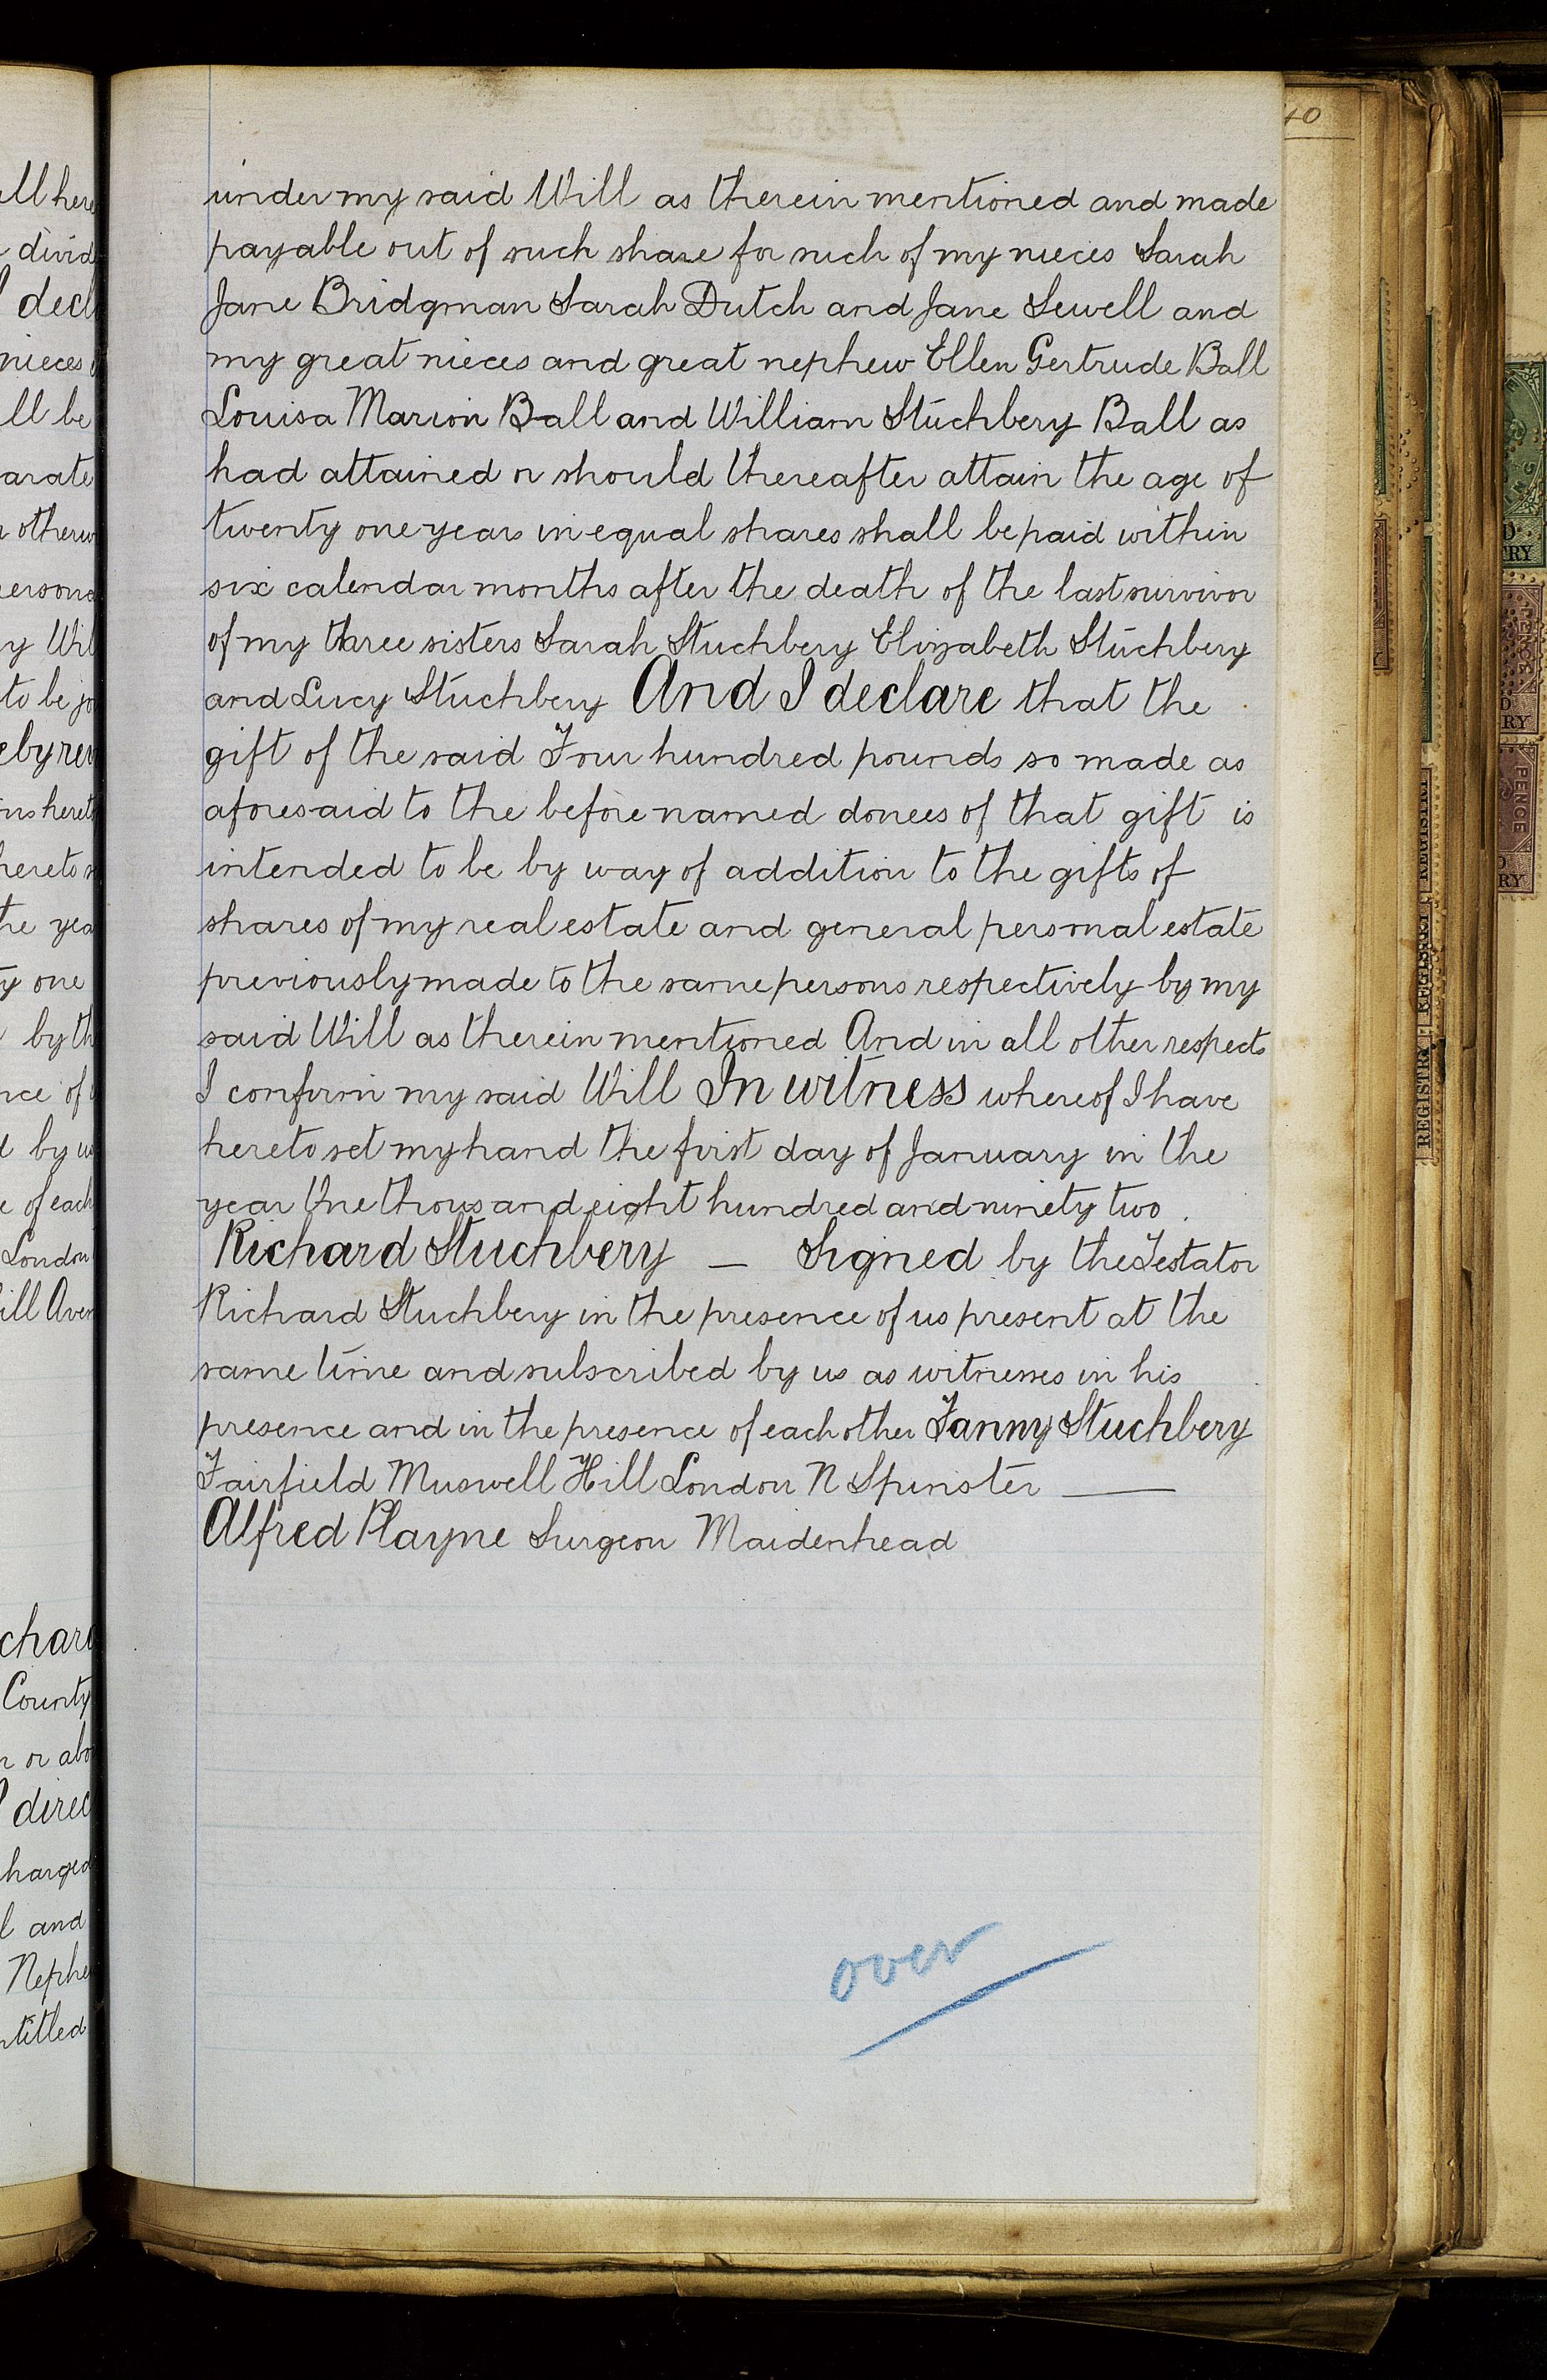 under my said Will as therein mentioned and made
payable out of such share for such of my nieces Sarah
Jane Bridgman Sarah Dutch and Jane Sewell and
my great nieces and great nephew Ellen Gertrude Ball
Louisa Marion Ball and William Stuchbery Ball as
had attained or should thereafter attain the age of
twenty one years in equal shares shall be paid within
six calendar months after the death of the last survivor
of my three sisters Sarah Stuchbery Elizabeth Stuchbery
and Lucy Stuchbery And I declare that the
gift of the said Four hundred pounds so made as
aforesaid to the before named donees of that gift is
intended to be by way of addition to the gifts of
shares of my real estate and general personal estate
previously made to the same persons respectively by my
said Will as therein mentioned And in all other respects
I confirm my said Will In witness whereof I have
hereto set my hand the first day of January in the
year One thousand eight hundred and ninety two.
Richard Stuchbery — Signed by the Testator
Richard Stuchbery in the presence of us present at the
same time and subscribed by us as witnesses in his
presence and in the presence of each other Fanny Stuchbery
Fairfield Muswell Hill London N Spinster —
Alfred Playne Surgeon Maidenhead
over
40
ll be
y one
London
County
direc
and
Nephe
REGISTRY
REGISTRY
REGISTRY
PENCE
PENCE